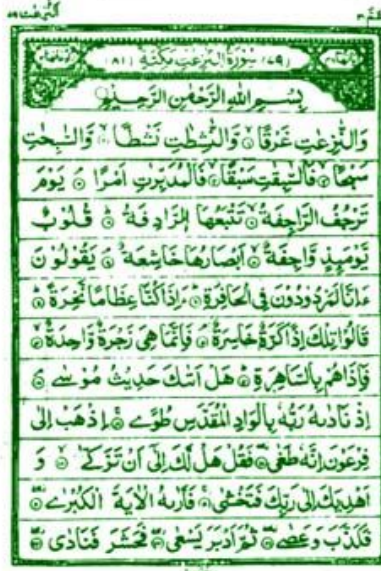 النّٰزعٰت ٧٩
عمّ ٣٠
(٧٩) سُوْرَةُ النّٰزِعٰتِ مَكِّيَّةٌ (٨١)
بِسْمِ اللهِ الرَّحْمٰنِ الرَّحِيْمِ
وَالنّٰزِعٰتِ غَرْقًا ۙ وَّالنّٰشِطٰتِ نَشْطًا ۙ وَّالسّٰبِحٰتِ
سَبْحًا ۙ فَالسّٰبِقٰتِ سَبْقًا ۙ فَالْمُدَبِّرٰتِ اَمْرًا ۘ يَوْمَ
تَرْجُفُ الرَّاجِفَةُ ۙ تَتْبَعُهَا الرَّادِفَةُ ؕ قُلُوْبٌ
يَّوْمَئِذٍ وَّاجِفَةٌ ۙ اَبْصَارُهَا خَاشِعَةٌ ۘ يَقُوْلُوْنَ
ءَاِنَّا لَمَرْدُوْدُوْنَ فِي الْحَافِرَةِ ؕ ءَاِذَا كُنَّا عِظَامًا نَّخِرَةً ؕ
قَالُوْا تِلْكَ اِذًا كَرَّةٌ خَاسِرَةٌ ۘ فَاِنَّمَا هِيَ زَجْرَةٌ وَّاحِدَةٌ ۙ
فَاِذَا هُمْ بِالسَّاهِرَةِ ؕ هَلْ اَتٰىكَ حَدِيْثُ مُوْسٰى ۘ
اِذْ نَادٰىهُ رَبُّهٗ بِالْوَادِ الْمُقَدَّسِ طُوًى ۚ اِذْهَبْ اِلٰى
فِرْعَوْنَ اِنَّهٗ طَغٰى ۖ فَقُلْ هَلْ لَّكَ اِلٰٓى اَنْ تَزَكّٰى ۙ وَ
اَهْدِيَكَ اِلٰى رَبِّكَ فَتَخْشٰى ۚ فَاَرٰىهُ الْاٰيَةَ الْكُبْرٰى ۖ
فَكَذَّبَ وَعَصٰى ۖ ثُمَّ اَدْبَرَ يَسْعٰى ۖ فَحَشَرَ فَنَادٰى ۖ